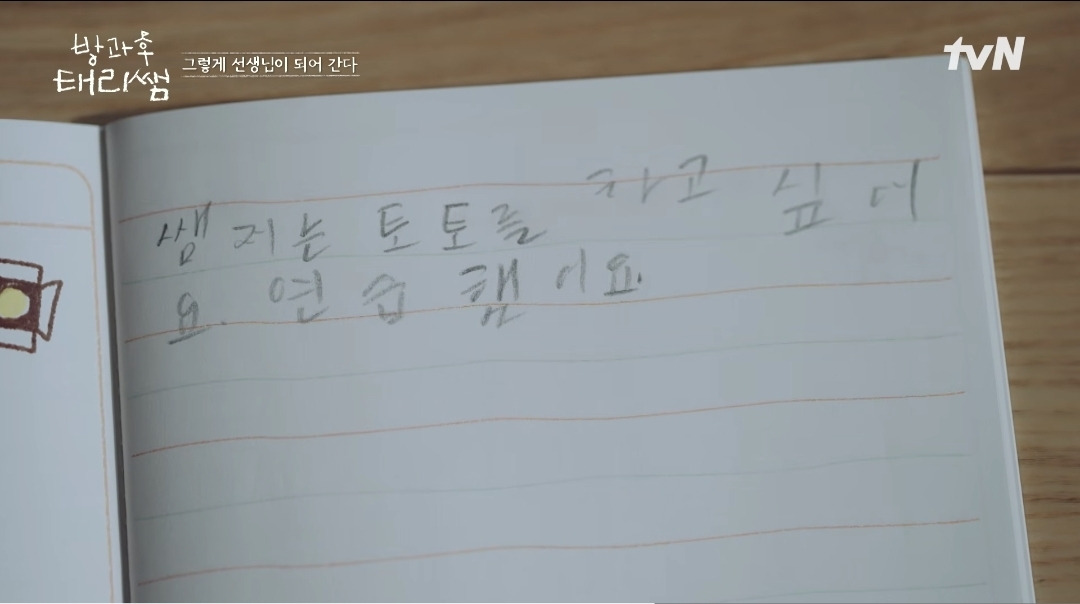 방과후
태리쌤
그렇게 선생님이 되어 간다
tvN
쌤지는 토토를 하고 싶어
요. 연습 했어요.